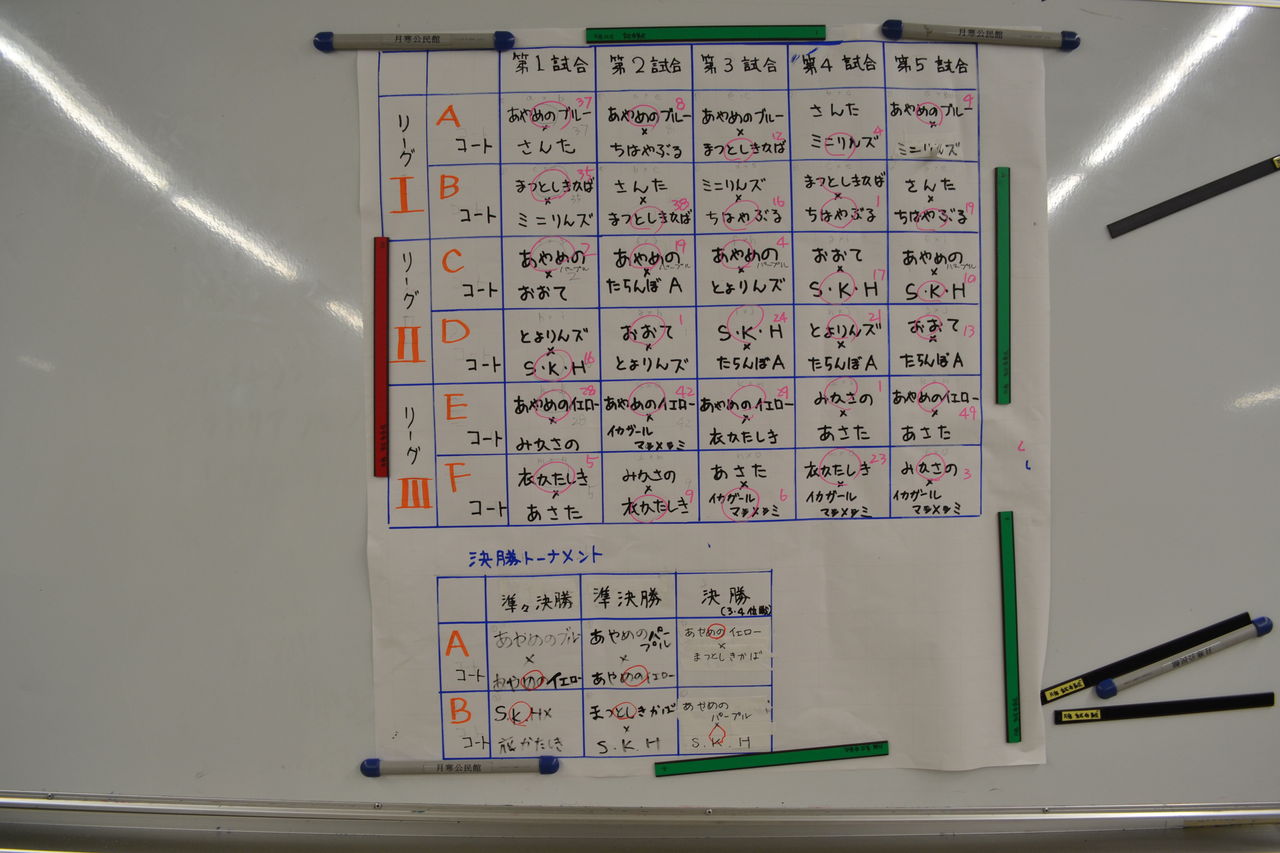 月寒公民館
月寒公民館
第1試合 第2試合 第3試合 第4試合 第5試合
リーグ I
A コート
あやめのブルー 37
×
さんた
あやめのブルー 8
×
ちはやぶる
あやめのブルー
×
まつとしきかば 12
さんた
ミニりんズ 4
あやめのブルー 9
×
ミニりんズ
B コート
まつとしきかば 35
×
ミニりんズ
さんた
×
まつとしきかば 38
ミニりんズ
×
ちはやぶる 16
まつとしきかば
×
ちはやぶる 1
さんた
×
ちはやぶる 19
リーグ II
C コート
あやめの パープル 2
×
おおて
あやめの パープル 19
×
たらんぽA
あやめの パープル 4
×
とよりんズ
おおて
×
S・K・H 17
あやめの パープル
×
S・K・H 10
D コート
とよりんズ
×
S・K・H 16
おおて 1
×
とよりんズ
S・K・H 24
×
たらんぽA
とよりんズ 21
×
たらんぽA
おおて 13
×
たらんぽA
リーグ III
E コート
あやめのイエロー 28
×
みかさの
あやめのイエロー 42
×
イカガール
マヨメヨミ
あやめのイエロー 29
×
衣かたしき
みかさの 1
×
あさた
あやめのイエロー 49
×
あさた
F コート
衣かたしき 5
×
あさた
みかさの
×
衣かたしき 9
あさた
×
イカガール 6
衣かたしき 23
×
イカガール
みかさの 3
×
イカガール
決勝トーナメント
準々決勝 準決勝 決勝
(3・4位戦)
A コート
あやめのブルー
×
あやめのイエロー
あやめのパープル
×
あやめのイエロー
あやめのイエロー
×
まつとしきかば
B コート
S.K.H ×
まつとしきかば
×
S.K.H
あやめの
パープル
×
S.K.H
月寒公民館